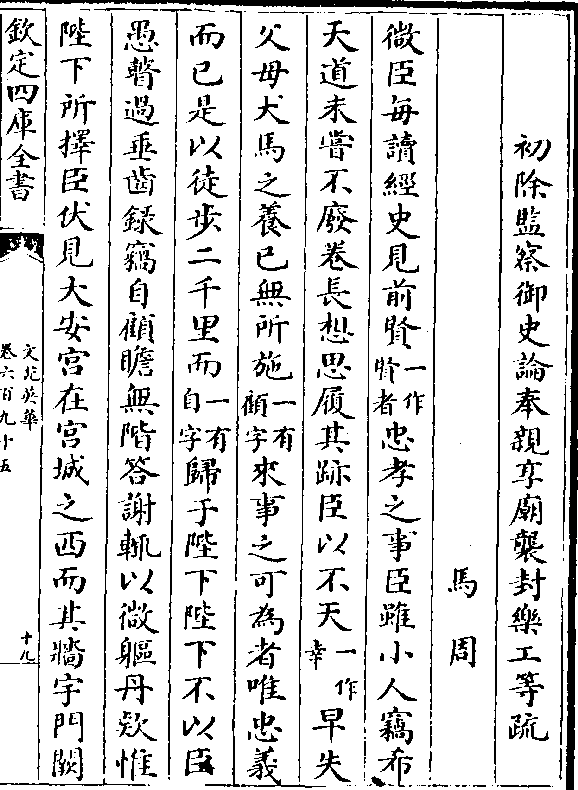 初除監察御史論奉親享廟襲封樂工等疏
馬周
微臣每讀經史見前賢一作賢者忠孝之事臣雖小人竊希
天道未嘗不廢卷長想思履其跡臣以不天一作幸早失
父母犬馬之養已無所施一有顧字來事之可為者唯忠義
而已是以徒步二千里而一有自字歸于陛下陛下不以臣
愚瞽過垂齒録竊自顧瞻無階答謝輒以微軀丹欵惟
陛下所擇臣伏見大安宫在宫城之西而其牆宇門闕
欽定四庫全書
文苑英華
卷六百九十五
十九